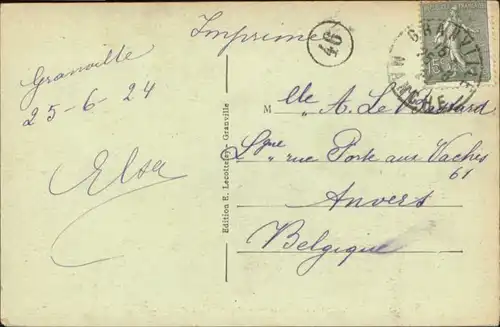 Imprimé
46
GRANVILLE
MANCHE
Granville
25-6-24
Elsa
Mlle A. Le
rue Porte aux Vaches
61
Anvers
Belgique
Edition E. Lecotterey, Granville